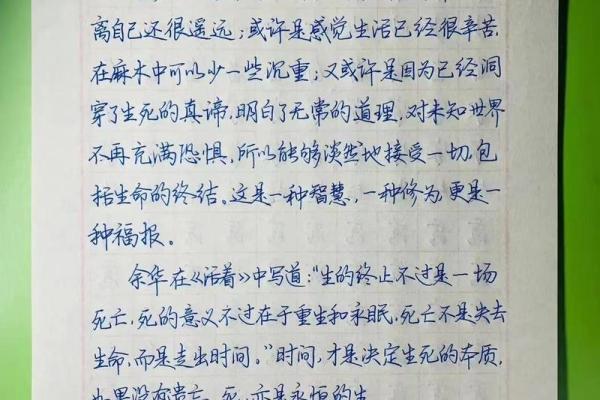 离自己还很遥远；或许是感觉生活已经很辛苦，
在麻木中可以少一些沉重；又或许是因为已经洞
穿了生死的真谛，明白了无常的道理，对未知世界
不再充满恐惧，所以能够淡然地接受一切，包
括生命的终结。这是一种智慧，一种修为，更是一
种福报。
余华在《活着》中写道："生的终止不过是一场
死亡，死的意义不过在于重生和永眠，死亡不是失去
生命，而是走出时间。"时间，才是决定生死的本质，
如果没有责亡，死，亦是永恒的生